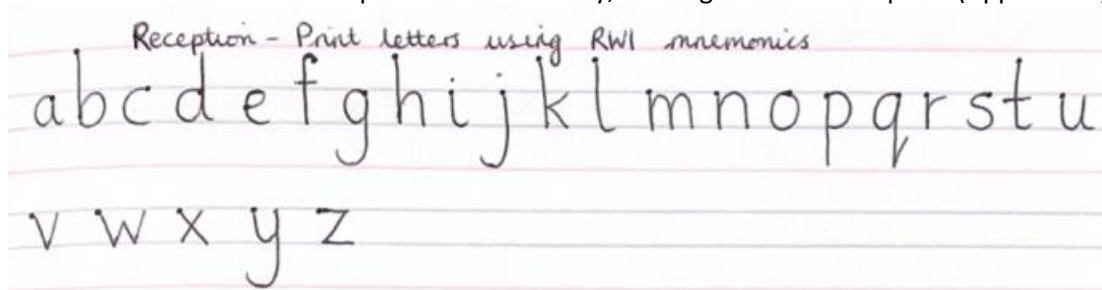 Reception - Print letters using RWI mnemonics
a b c d e f g h i j k l m n o p q r s t u
v w x y z